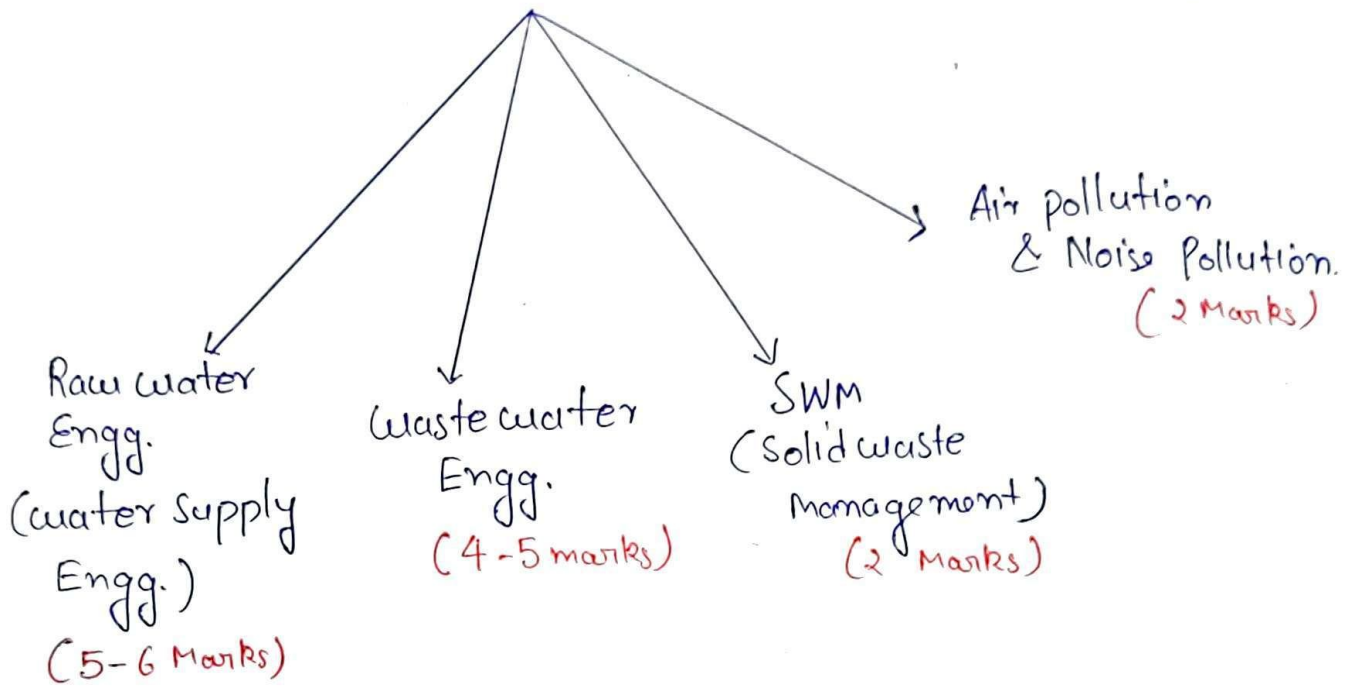 Raw water
Engg.
(water supply
Engg.)
(5-6 Marks)
waste water
Engg.
(4-5 marks)
SWM
(Solid waste
Management)
(2 Marks)
Air pollution
& Noise Pollution.
(2 Marks)